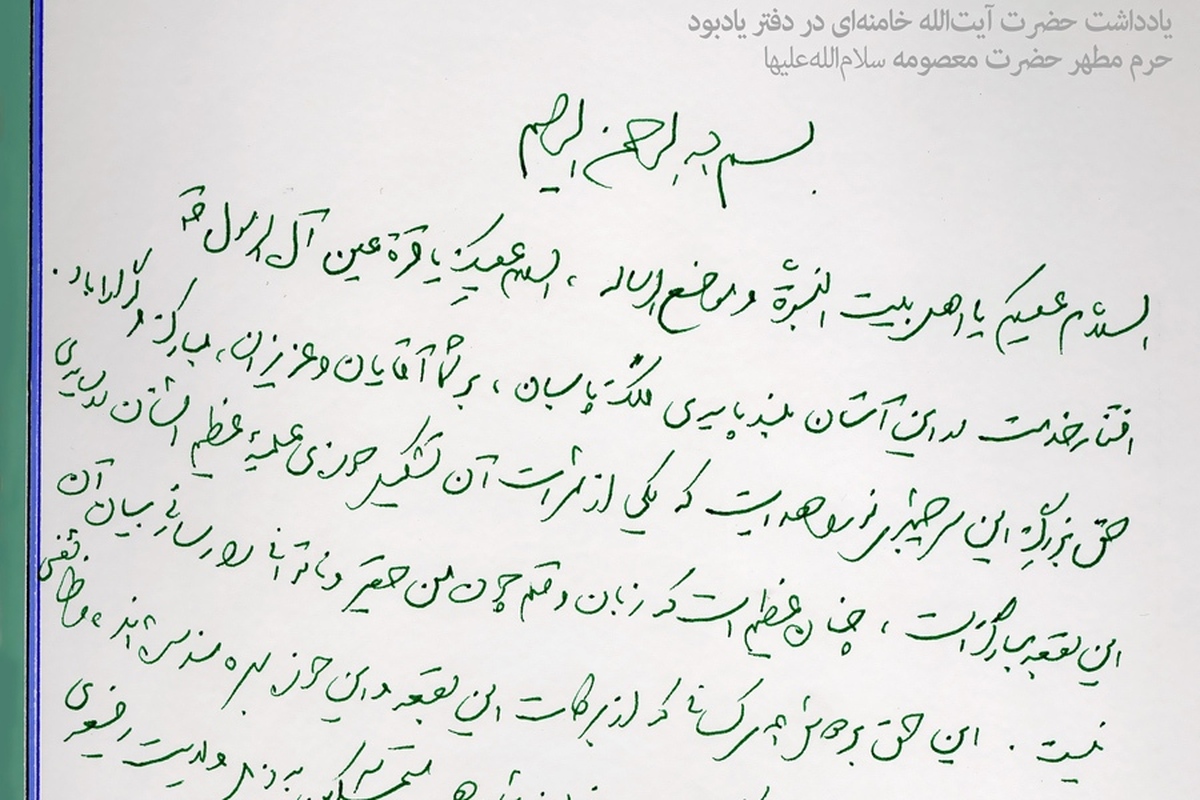 یادداشت حضرت آیت‌الله خامنه‌ای در دفتر یادبود
حرم مطهر حضرت معصومه سلام‌الله‌علیها
بسم الله الرحمن الرحیم
السلام علیکم یا اهل بیت النبوة و موضع الرسالة ، السلام علیک یا قرة عین آل الرسول
افتخار خدمت در این آستان بلند پایه‌ی ملک پاسبان ، بر شما آقایان و عزیزان، مبارک و گوارا باد .
حق بزرگ این سرچشمه‌ی نور و هدایت که یکی از ثمرات آن تشکیل حوزه‌ی علمیه‌ی عظیم الشأن در
این بقعه‌ی مبارکه است ، چنان عظیم است که زبان و قلم چون من حقیر و ناتوانی را رسای بیان آن
نیست . این حق بر دوش همه‌ی کسانی که از برکات این بقعه و این حوزه بهره‌مند شده‌اند ،
ولایت رضوی